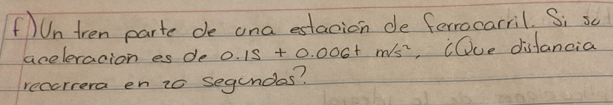 f) Un tren parte de una estación de ferrocarril. Si su
aceleracion es de 0.15 + 0.006t m/s², ¿Que distancia
recorrera en 20 segundos?